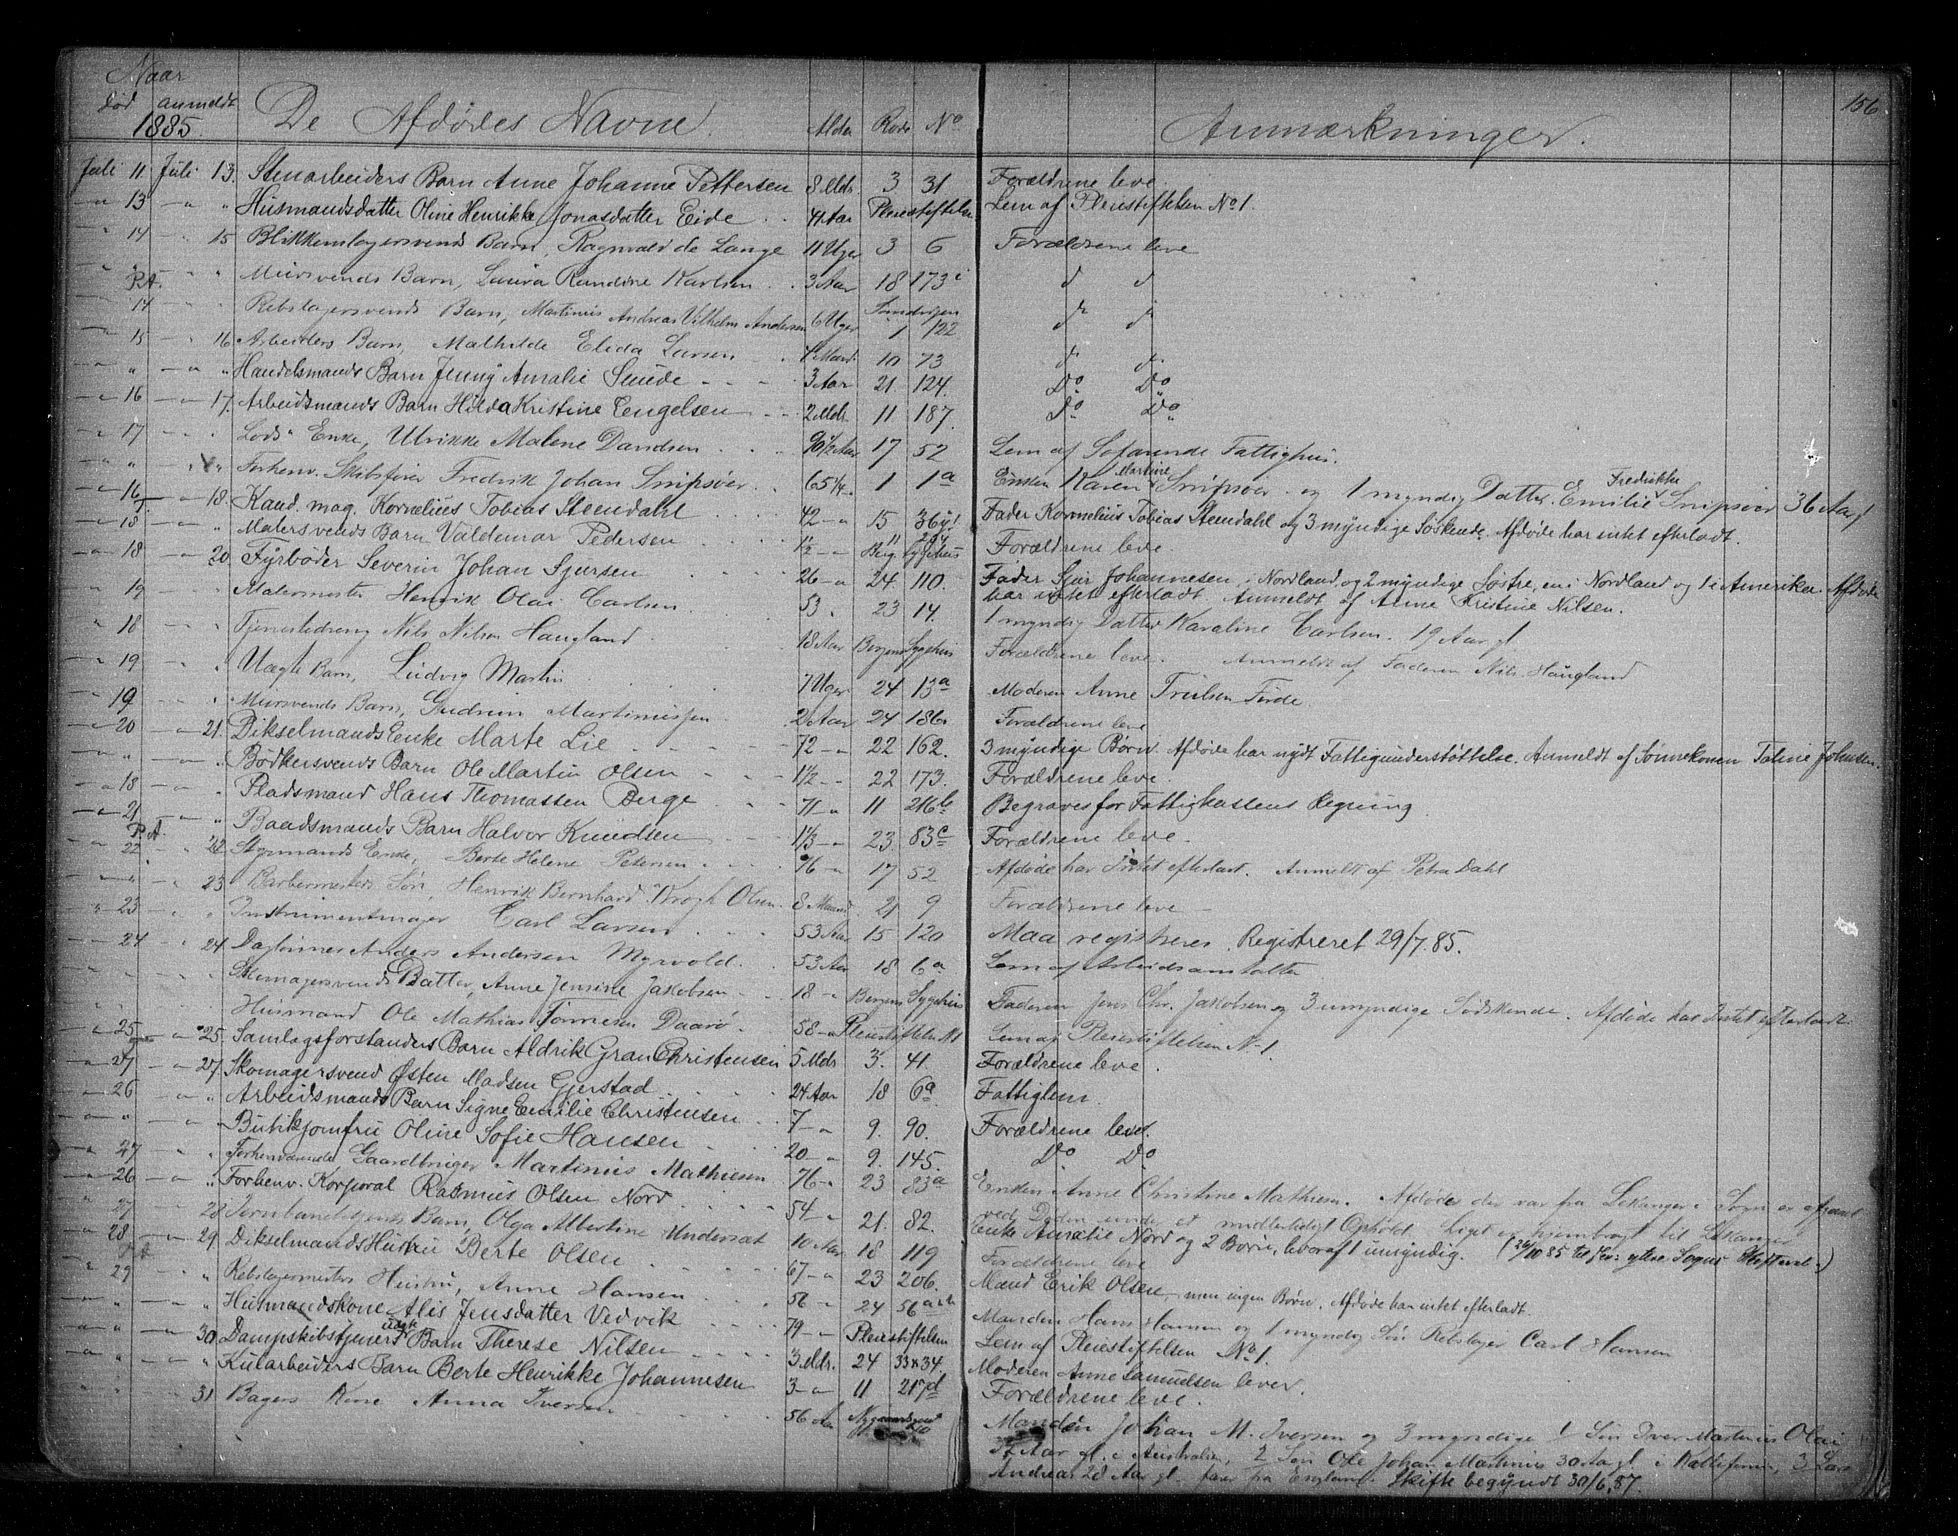 Naar
død anmeldt
1885. De Afdødes Navne. Alder Rode No Anmærkninger. 156
Juli 11 Juli 13. Stenarbeiders Barn Anne Johanne Pettersen 8 Mdr. 3 31 Forældrene leve.
13 Husmandsdatter Oline Henrikke Jonasdatter Eide 41 Aar Pleiestiftelsen Lem af Pleiestiftelsen No 1.
14 15 Blikkenslagersvends Barn, Ragnvald de Lange 11 Uger 3 6 Forældrene leve
P.A. Mursvends Barn, Laura Randine Karlsen 3 Aar 18 173 d d
14 Rebslagersvends Barn, Martinus Andreas Vilhelm Andersen 6 Uger Sandvigen 1 122 d d
15 16 Arbeiders Barn, Mathilde Elida Larsen 10 73 d d
Handelsmands Barn Jenny Amalie Smide 3 Aar 21 124. Do Do
16 17. Arbeidsmands Barn Hilda Kristine Eengelsen 2 Mdr. 11 187. Do Do
17 Lods Enke, Ulrikke Malene Davidsen 90 1/2 Aar 17 52 Lem af Søfarende Fattighus.
Forhenv. Skibsfører Fredrik Johan Snipsøer 65 1/4 1 1a Enken Karen Martine Snipsøer og 1 myndig Datter Emilie Fredrikke Snipsøer 36 Aar gl
16 18. Kand. mag. Kornelius Tobias Stendahl 42 15 36 Fader Kornelius Tobias Stendahl og 3 myndige Søskende. Afdøde har intet efterladt.
18 Malersvends Barn Valdemar Pedersen 1 1/2 11 Berg. Sygehus Forældrene leve.
18 20. Fyrbøder Severin Johan Sjursen 26 24 110. Fader Sjur Johannesen i Nordland og 2 myndige Søstre, en i Nordland og 1 i Amerika. Afdøde
har intet efterladt. Anmeldt af Anne Kristine Nilsen.
19 Malermester Henrik Olai Carlsen 53 23 14. 1 myndig Datter Karoline Carlsen. 19 Aar gl
18 Tjenestedreng Nils Nilsen Haugland 18 Aar Bergens Sygehus Forældrene leve. Anmeldt af Faderen Nils Haugland
19 Uægte Barn, Ludvig Martin 7 Uger 24 13a Moderen Anne Trulsen Førde.
19 Mursvends Barn, Gudrun Martinussen 2 Aar 24 186. Forældrene leve
20 21. Dikselmands Enke Marte Lie 72 22 162. 3 myndige Børn. Afdøde har nydt Fattigunderstøttelse. Anmeldt af Sønnekonen Taline Johnsen.
Bødkersvends Barn Ole Martin Olsen 1 1/2 22 173. Forældrene leve.
18 Pladsmand Hans Thomassen Berge 71 11 216b Begraves for Fattigkassens Regning
21 Baadsmands Barn Halvor Knudsen 1 1/3 23. 83c Forældrene leve.
P.A. 22 22 Styrmands Enke, Berte Helene Petersen 76 17 52 Afdøde har Intet efterladt. Anmeldt af Petra Dahl
23 Barbermesters Søn, Henrik Bernhard Krogh Olsen 8 Maaned 21 9 Forældrene leve
23 Instrumentmager Carl Larsen 53 Aar 15 120 Maa registreres. Registreret 29/7. 85.
24 24 Daglønner Anders Andersen Myrvold 53 Aar 18 6a Lem af Arbeidsanstalten
Skomagersvends Datter, Anne Jensine Jakobsen 18 Bergens Sygehus Faderen Jens Chr. Jakobsen og 3 umyndige Sødskende. Afdøde har Intet efterladt.
Husmand Ole Mathias Tønnesen Daarø 58 Pleiestiftelsen No 1 Lem af Pleiestiftelsen No 1.
25 25. Samlagsforstanders Barn Aldrik Gran Christensen 5 Mdr 3. 41. Forældrene leve.
27 27 Skomagersvend Østen Madsen Gjerstad 24 Aar 18 6a Fattiglem.
26 Arbeidsmands Barn Signe Emilie Christensen 7 9. 90. Forældrene leve.
Butikjomfru Oline Sofie Hansen 20 9. 145. Do Do
27 Forhenværende Gaardbruger Martinus Mathiesen 76 23 83a Enken Anne Christine Mathiesen. Afdøde der var fra Lekanger Sogn er afgaaet
ved Døden under et midlertidigt Ophold. Liget er hjembragt til Lekanger
26 Forhenv. Korporal Rasmus Olsen Nord 54 21. 82. Enke Amalie Nord og 2 Børn, hvoraf 1 umyndig. (26/10 85 til Ytre Sogns Skifteret.)
27 28 Barn, Olga Albertine Undersat 10 Aar 18 119 Forældrene leve
28 29. Dikselmands Hustru Berte Olsen 67 23 206. Mand Erik Olsen, men ingen Børn. Afdøde har intet efterladt.
29 Rebslagermesters Hustru, Anne Hansen 56 24 56 Manden Hans Hansen og 1 myndig Søn Rebslager Carl Hansen
Husmandskone Alis Jensdatter Vedvik 79 Pleiestiftelsen Lem af Pleiestiftelsen No 1.
30. Dampskibstjeners uægte Barn Therese Nilsen 3 Mdr. 24 33 & 34 Moderen Anne Samuelsen lever.
Kularbeiders Barn Berte Henrikke Johannesen 3 11 217d Forældrene leve.
31 Bagers Kone Anna Iversen 56 Aar Manden Johan M. Iversen og 3 myndige 1 Søn Iver Martinus Olai
Aar gl. i Australien, 2 Søn Ole Johan Martinus 30 Aar gl. i Kalifornien, 3 Lars
Andreas 28 Aar gl. farer fra England. Skifte begyndt 30/6. 87.